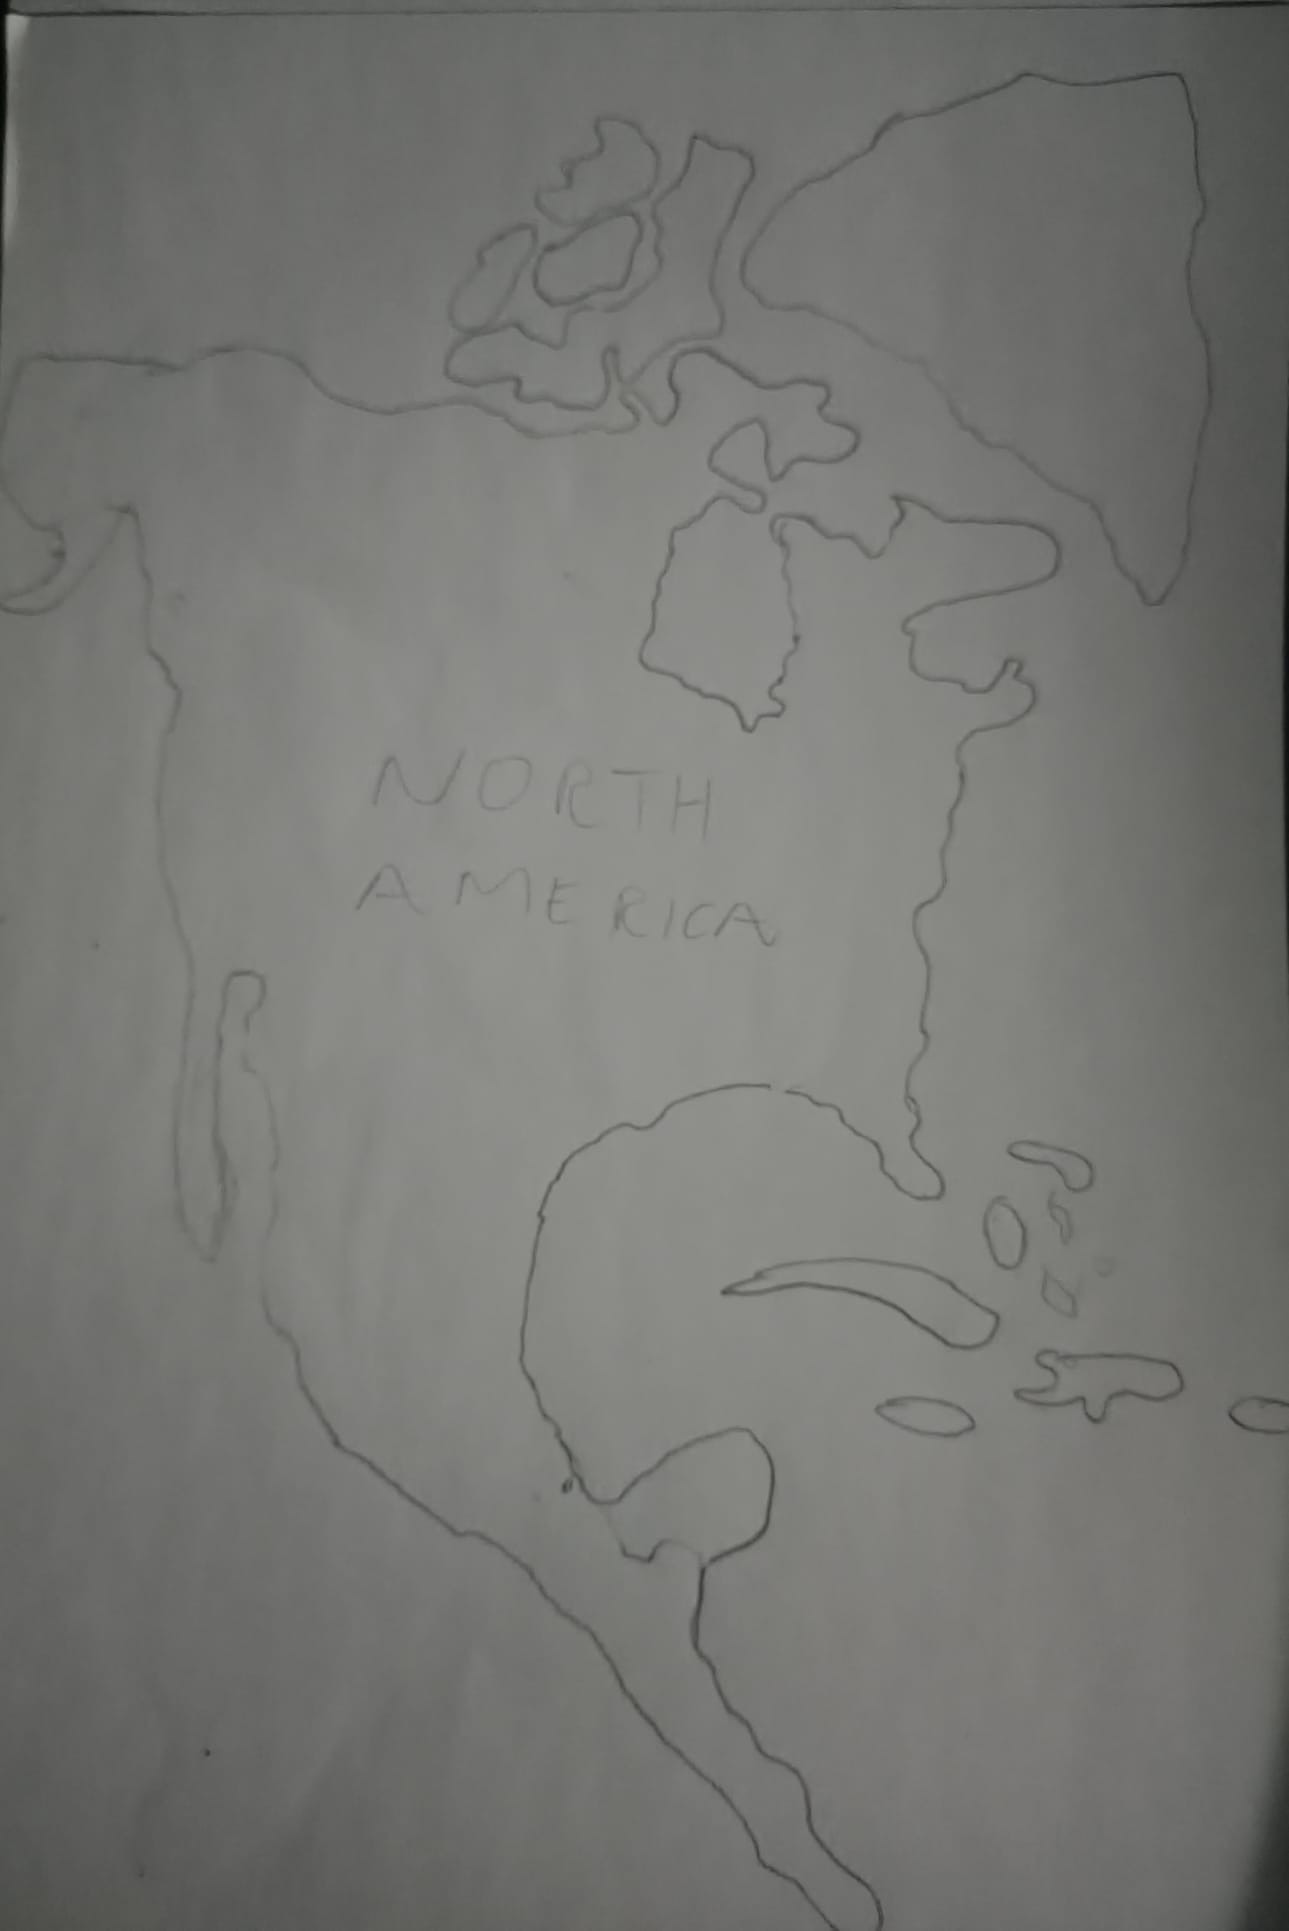 NORTH
AMERICA